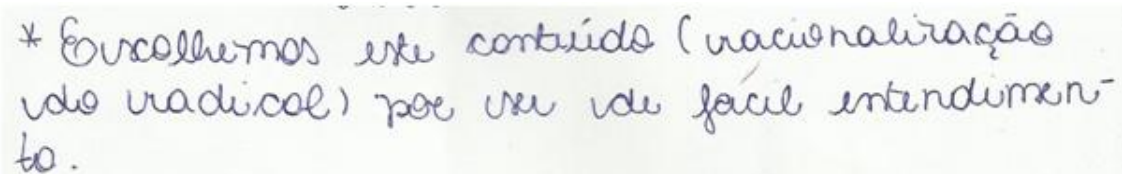 * Escolhemos este conteúdo (racionalização
do radical) por ser de fácil entendimen-
to.